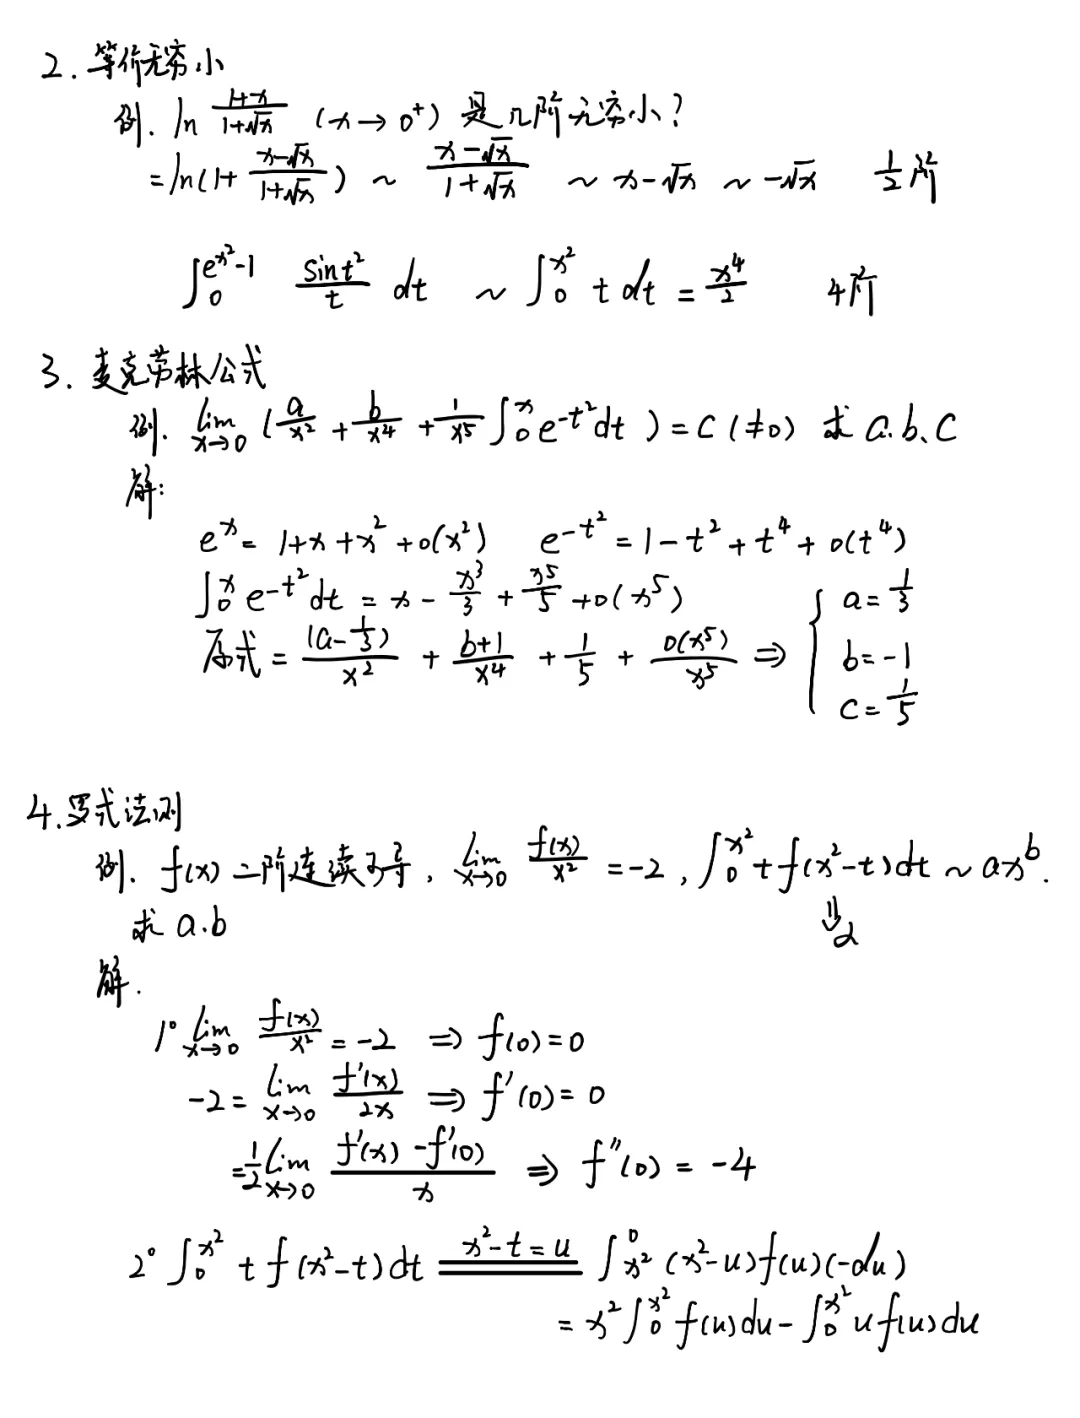 2. 等价无穷小
例. ln (1+x)/(1+√x) (x→0⁺) 是几阶无穷小?
= ln(1+ (x-√x)/(1+√x)) ~ (x-√x)/(1+√x) ~ x-√x ~ -√x 1/2阶
∫₀^(e^(x²)-1) (sint²)/t dt ~ ∫₀^(x²) t dt = x⁴/2 4阶
3. 麦克劳林公式
例. lim_(x→0) (a/x² + b/x⁴ + 1/x⁵ ∫₀^x e^(-t²)dt) = C (≠0) 求 a.b、C
解:
e^x = 1+x+x²+o(x²) e^(-t²) = 1-t²+t⁴+o(t⁴)
∫₀^x e^(-t²)dt = x - x³/3 + x⁵/5 + o(x⁵)
原式 = (a-1/3)/x² + (b+1)/x⁴ + 1/5 + o(x⁵)/x⁵ ⇒ { a=1/3
b=-1
C=1/5
4. 罗式法则
例. f(x) 二阶连续可导, lim_(x→0) f(x)/x² = -2, ∫₀^(x²) t f(x²-t)dt ~ ax^b.
求 a.b ⇓ 2
解.
1° lim_(x→0) f(x)/x² = -2 ⇒ f(0)=0
-2 = lim_(x→0) f'(x)/2x ⇒ f'(0)=0
= 1/2 lim_(x→0) (f'(x)-f'(0))/x ⇒ f''(0) = -4
2° ∫₀^(x²) t f(x²-t)dt =(x²-t=u)= ∫_(x²)^0 (x²-u)f(u)(-du)
= x² ∫₀^(x²) f(u)du - ∫₀^(x²) u f(u)du